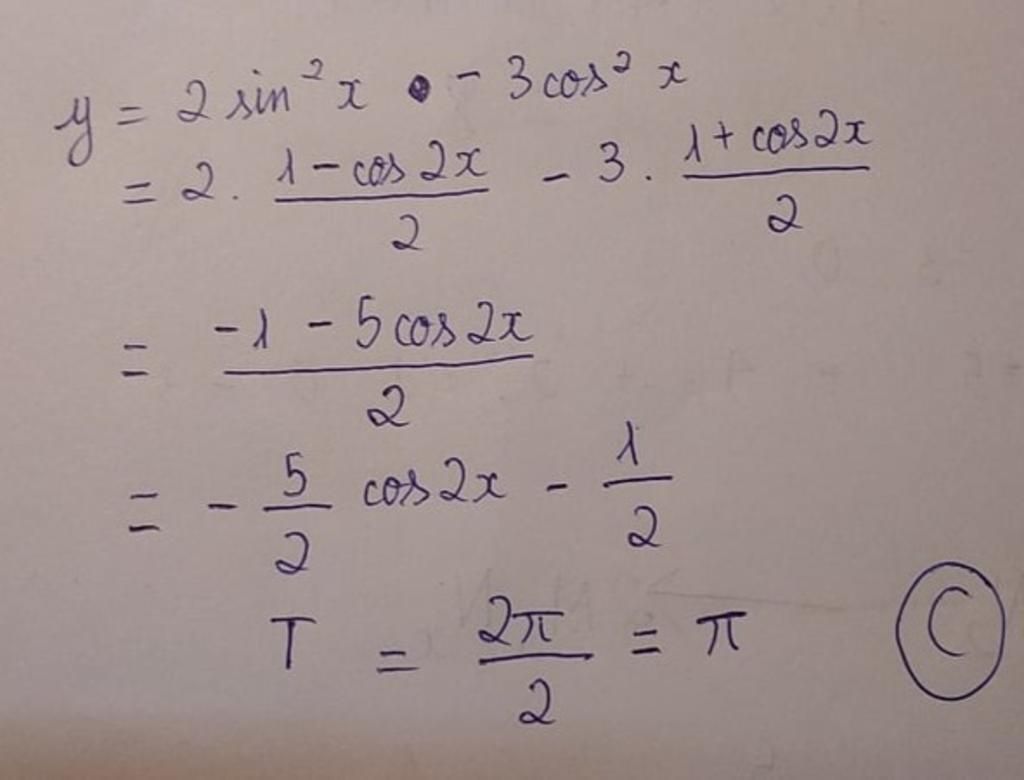 y = 2 sin² x • - 3 cos² x
= 2 . \frac{1 - cos 2x}{2} - 3 . \frac{1 + cos 2x}{2}
= \frac{-1 - 5 cos 2x}{2}
= - \frac{5}{2} cos 2x - \frac{1}{2}
T = \frac{2π}{2} = π
C